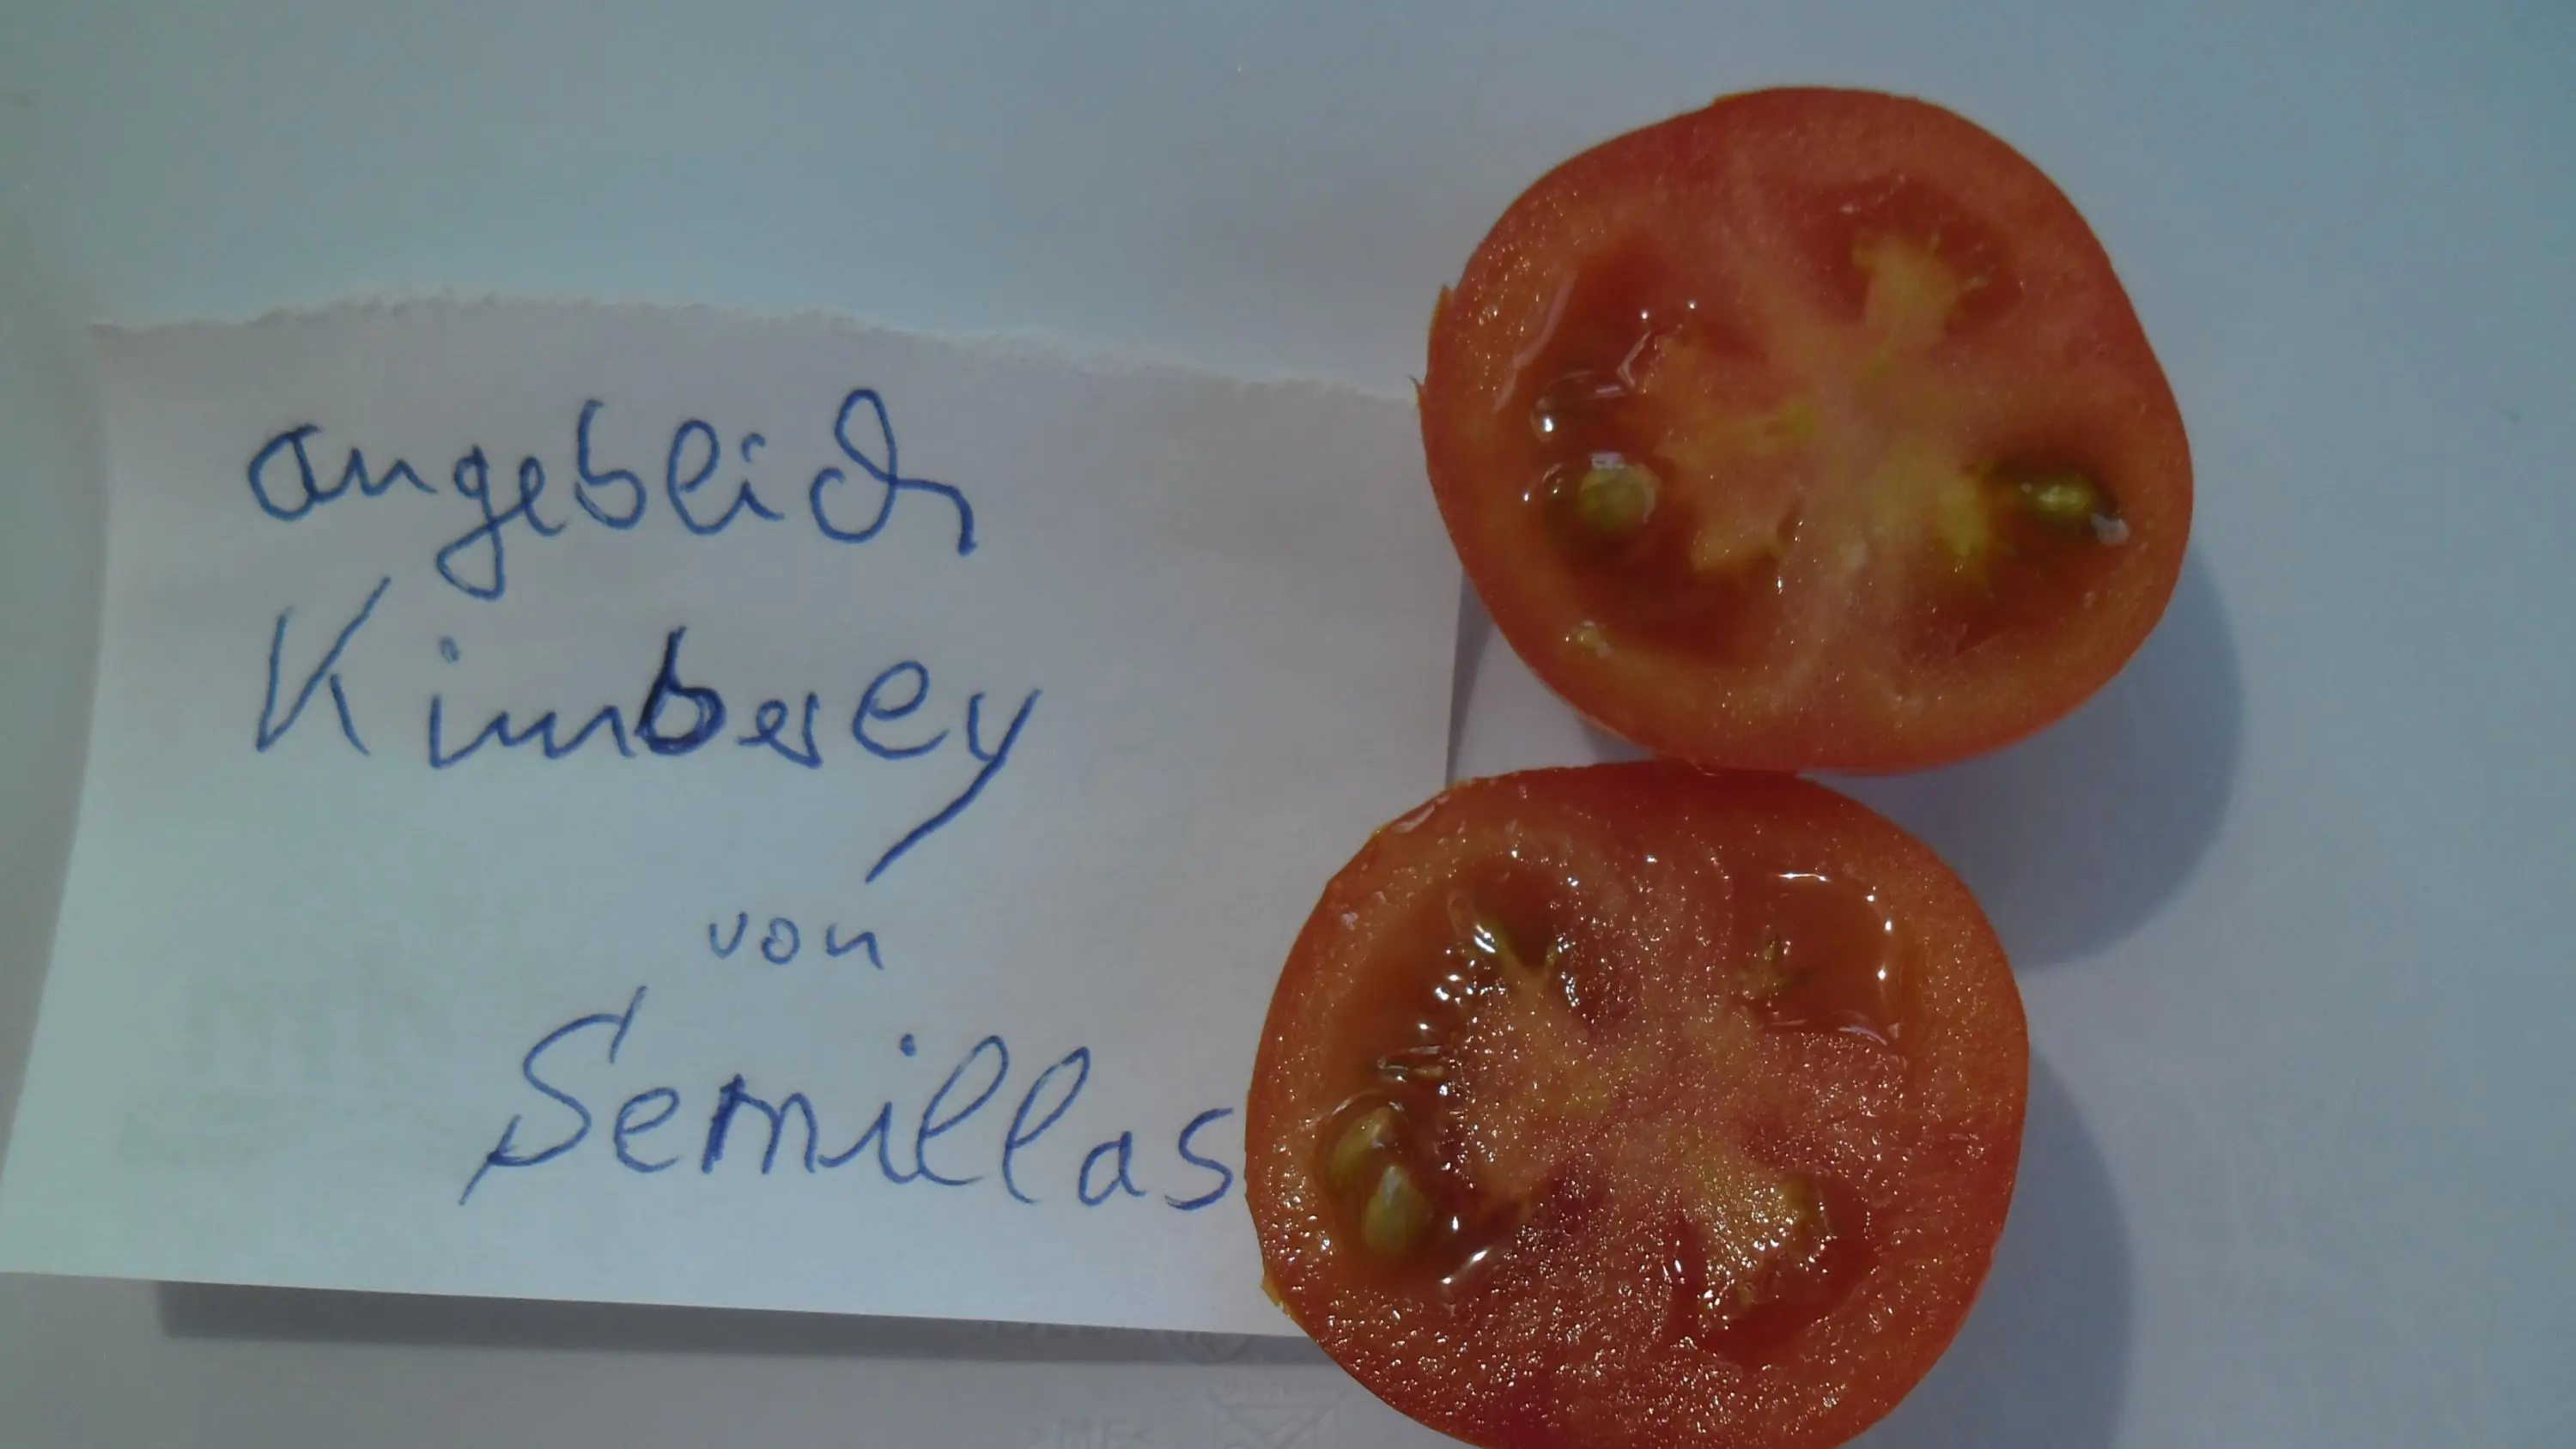 angeblich
Kimberey
von
Semillas